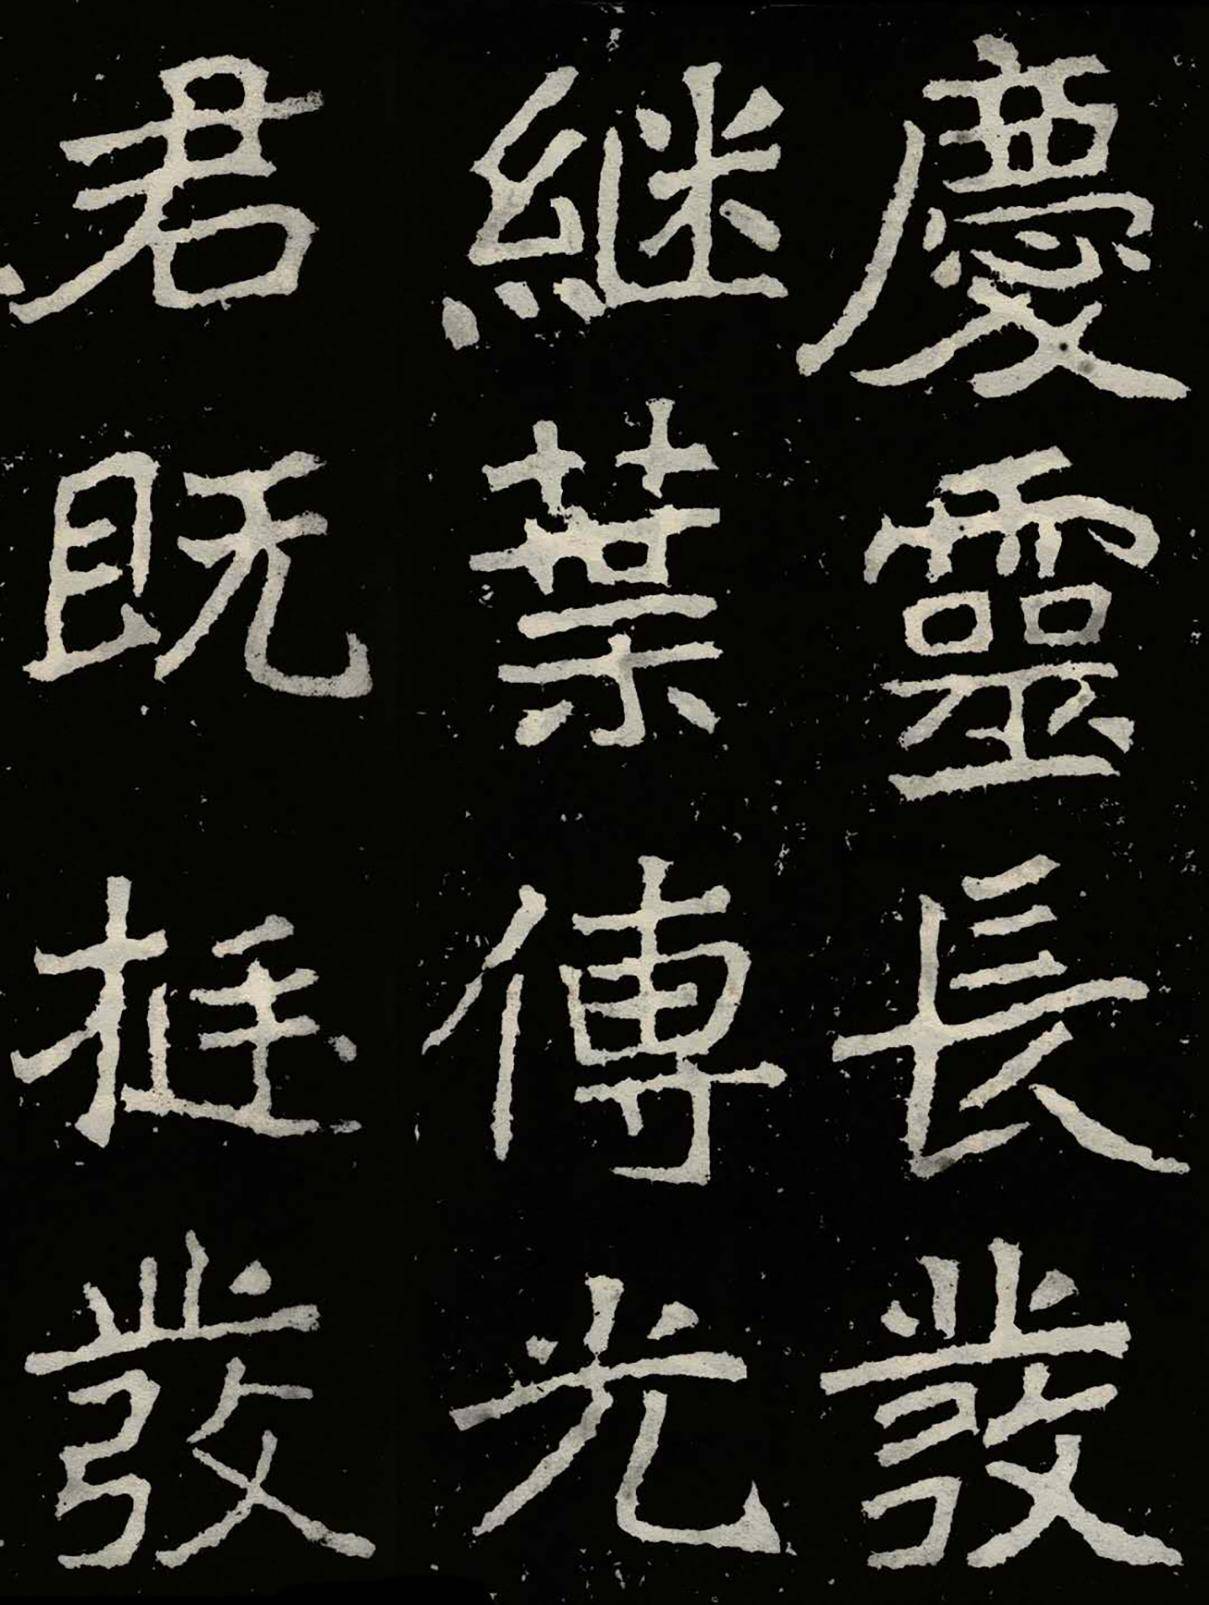 慶靈長發
継葉傳光
君既挺發